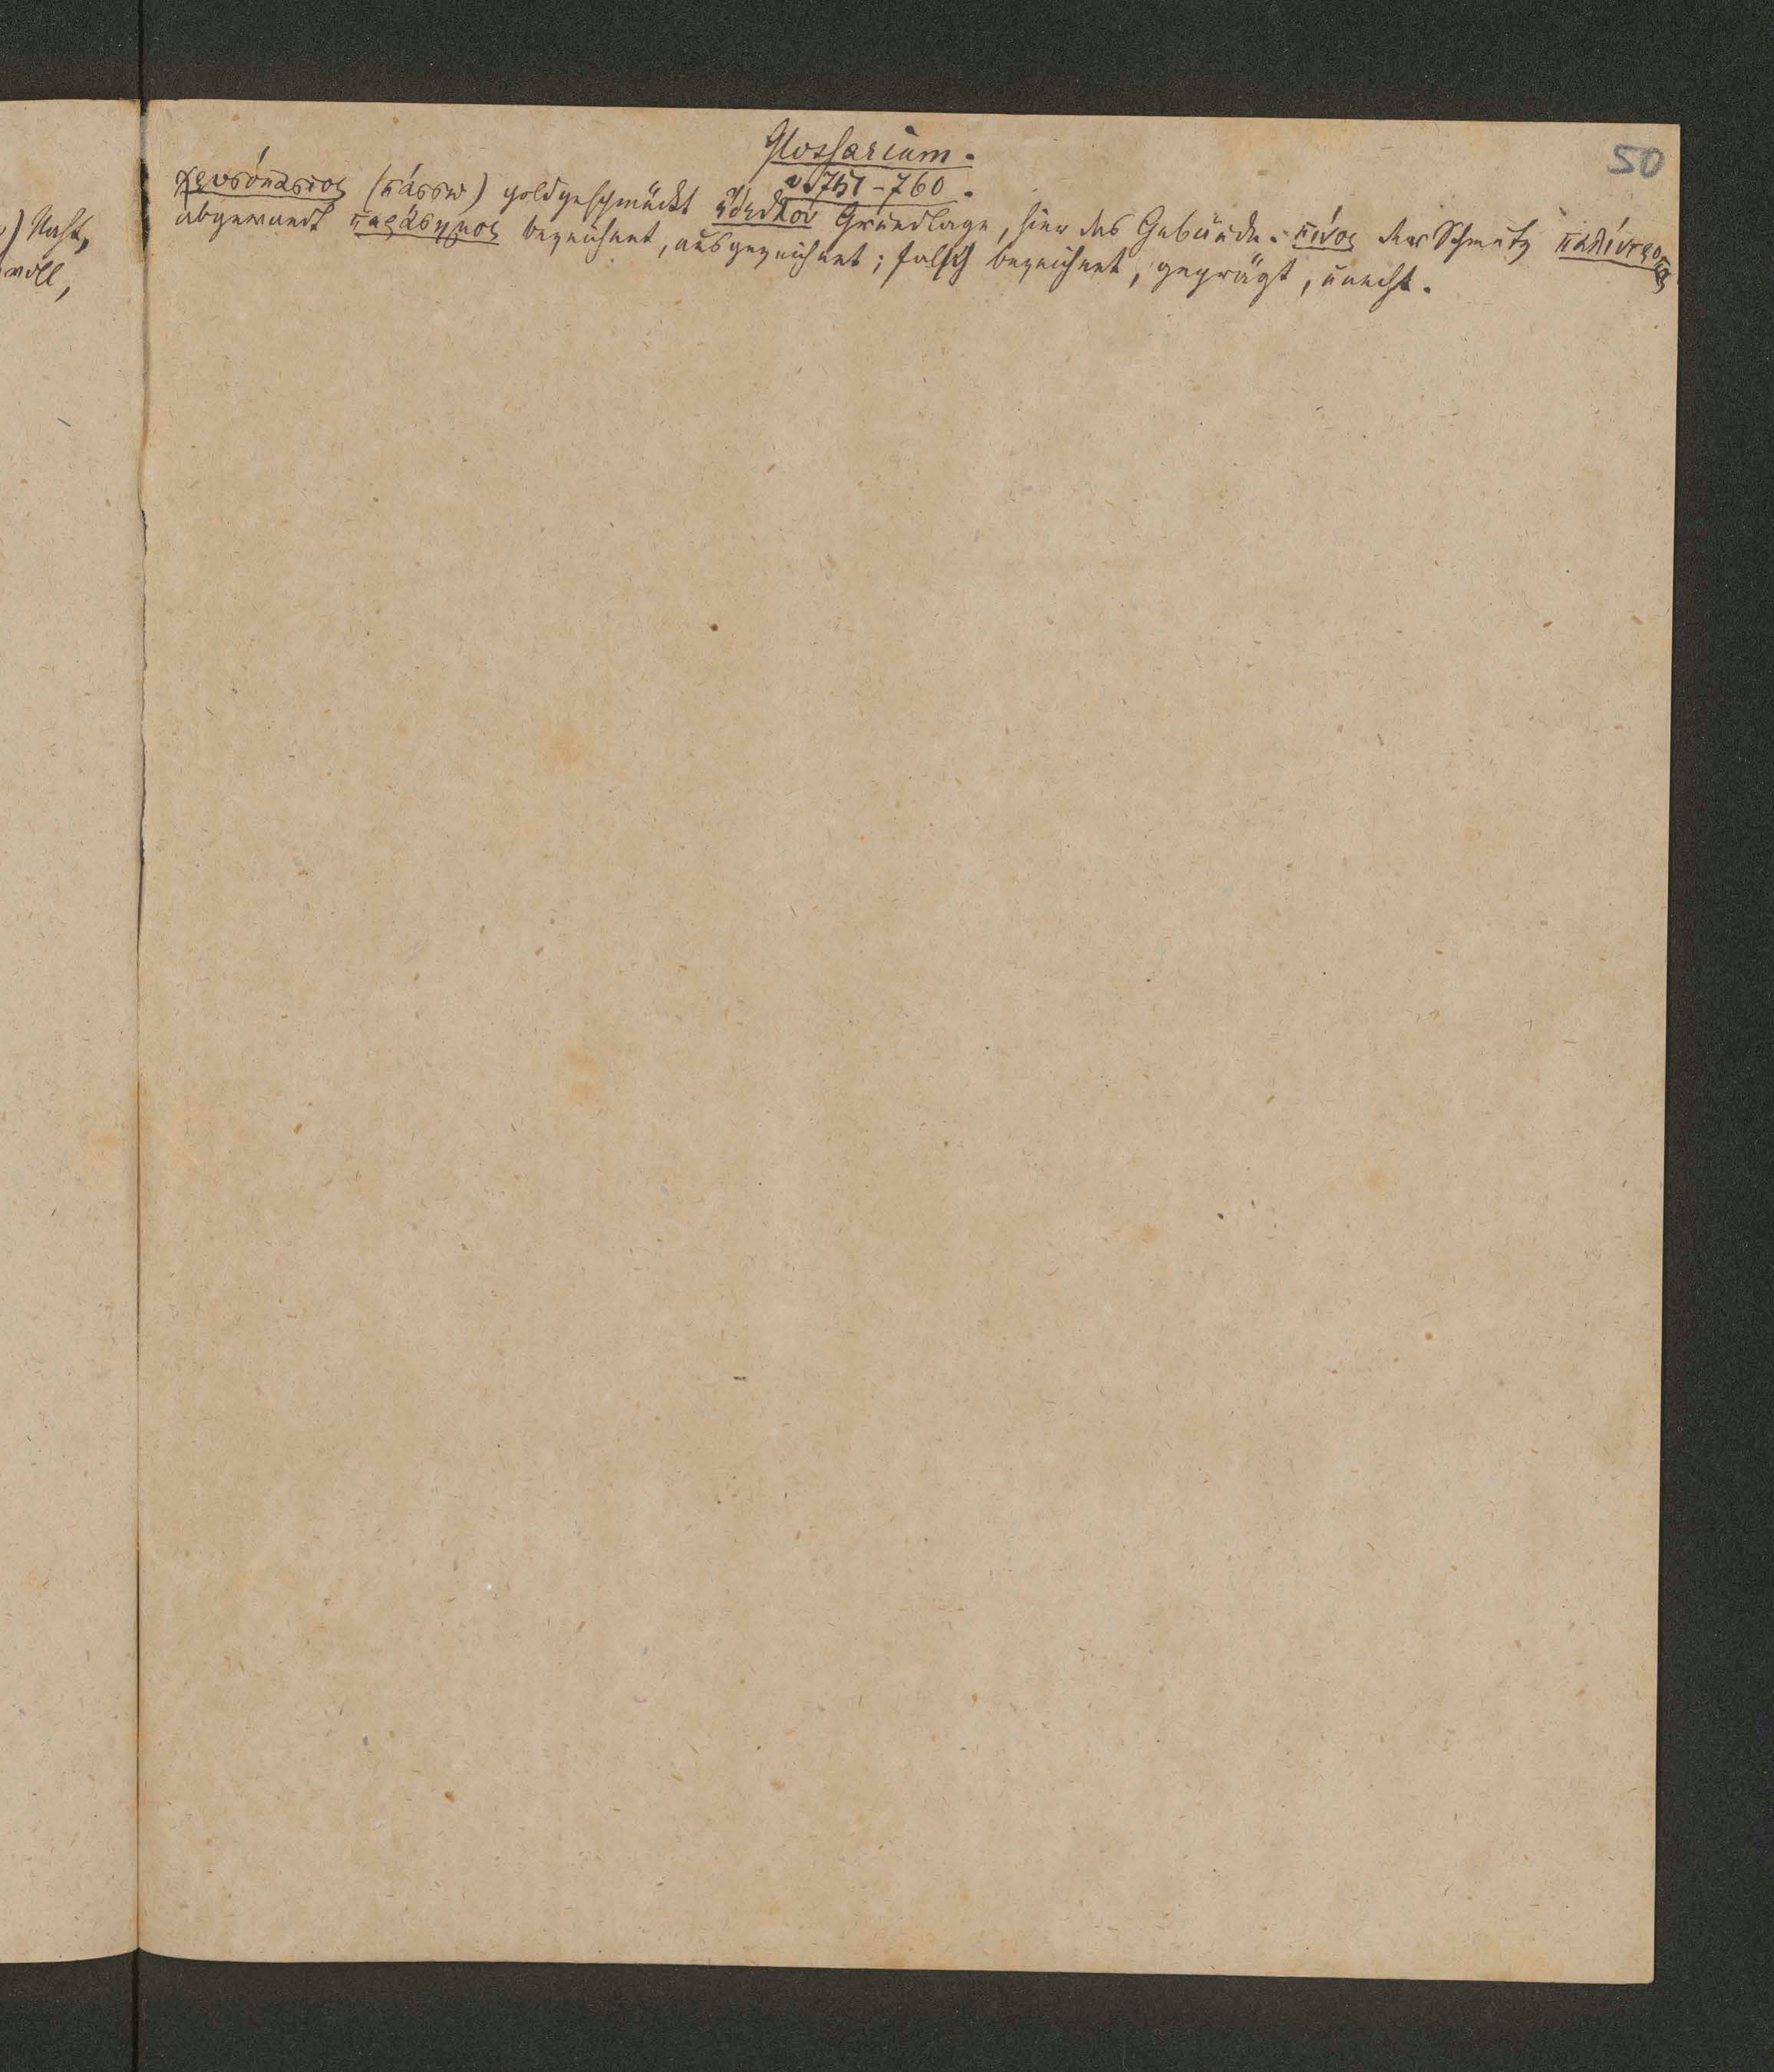 50
Glossarium.
v. 751-760.
χρυσόπαστος (πάσσω) goldgeschmückt ἔδεθλον Grundlage, hier des Gebäude. πίνος der Schmutz παλίντροπος
abgewandt παράσημος bezeichnet, ausgezeichnet; falsch bezeichnet, geprägt, unecht.
voll,